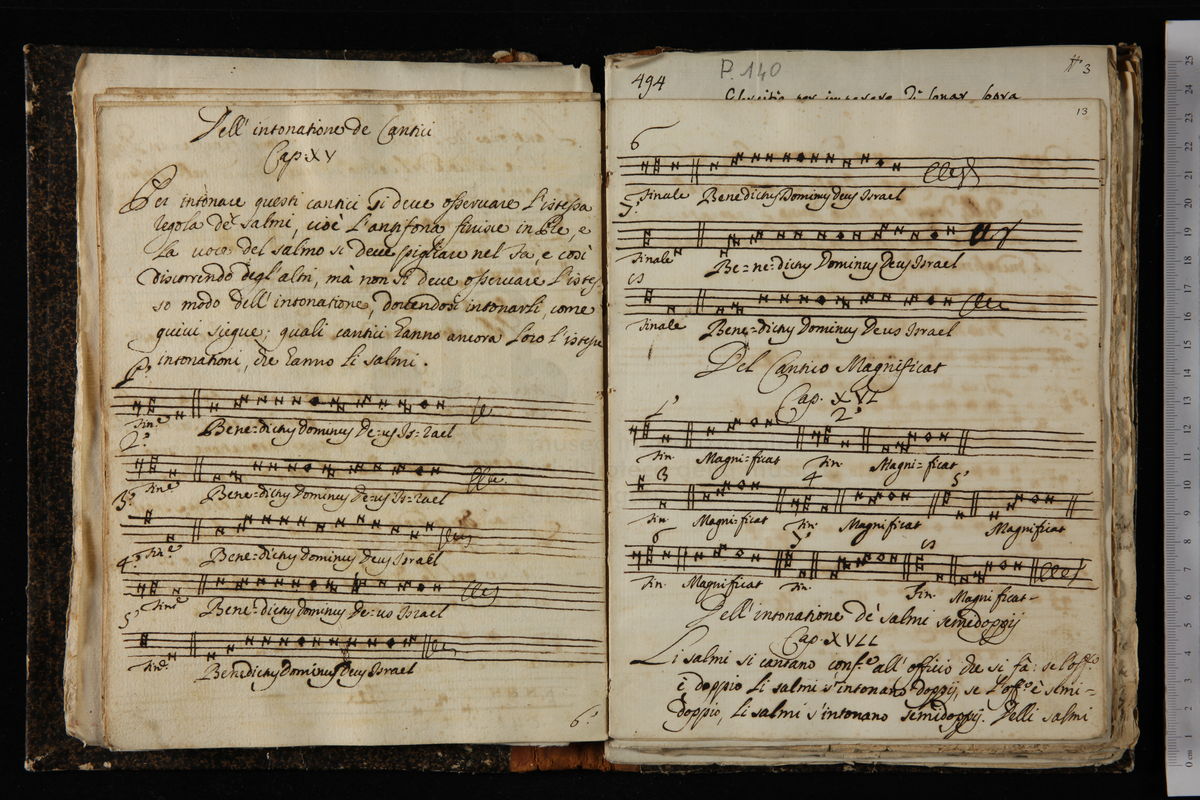 Dell' intonatione de Cantici
Cap. XV
Per intonare questi cantici si deve osservare l'istessa
regola de salmi, cioè l'antifona finisce in Re, e
la voce del salmo si deve pigliare nel fa, e così
discorrendo degl'altri, mà non si deve osservare l'istes-
so modo dell'intonatione, dovendosi intonarli come
quivi siegue: quali cantici hanno ancora loro l'istesse
intonationi, che hanno li salmi.
1°
fin.e Bene=dictus dominus de=us Is=rael
2°
fin.e Bene=dictus dominus De=us Is=rael
3°
fin.e Bene=dictus dominus Deus Israel
4°
fin.e Bene=dictus dominus De=us Israel
5°
fin.e Benedictus Dominus Deus Israel
6°
494 P. 140 3
13
6
finale Benedictus Dominus Deus Israel
7°
finale Be=ne=dictus Dominus Deus Israel
8
finale Bene=dictus Dominus Deus Israel
Del Cantico Magnificat
Cap. XVI
1° 2°
fin. Magni=ficat fin. Magni=ficat
3 4 5°
fin. Magni=ficat fin. Magnificat Magnificat
6 7° 8
fin. Magnificat fin. fin. Magnificat
Dell'intonatione de' salmi semidoppij
Cap. XVII
Li salmi si cantano conf.e all'officio che si fà: se l'off.o
è doppio li salmi s'intonano doppij, se l'off.o è semi=
doppio, li salmi s'intonano semidoppij. Delli salmi